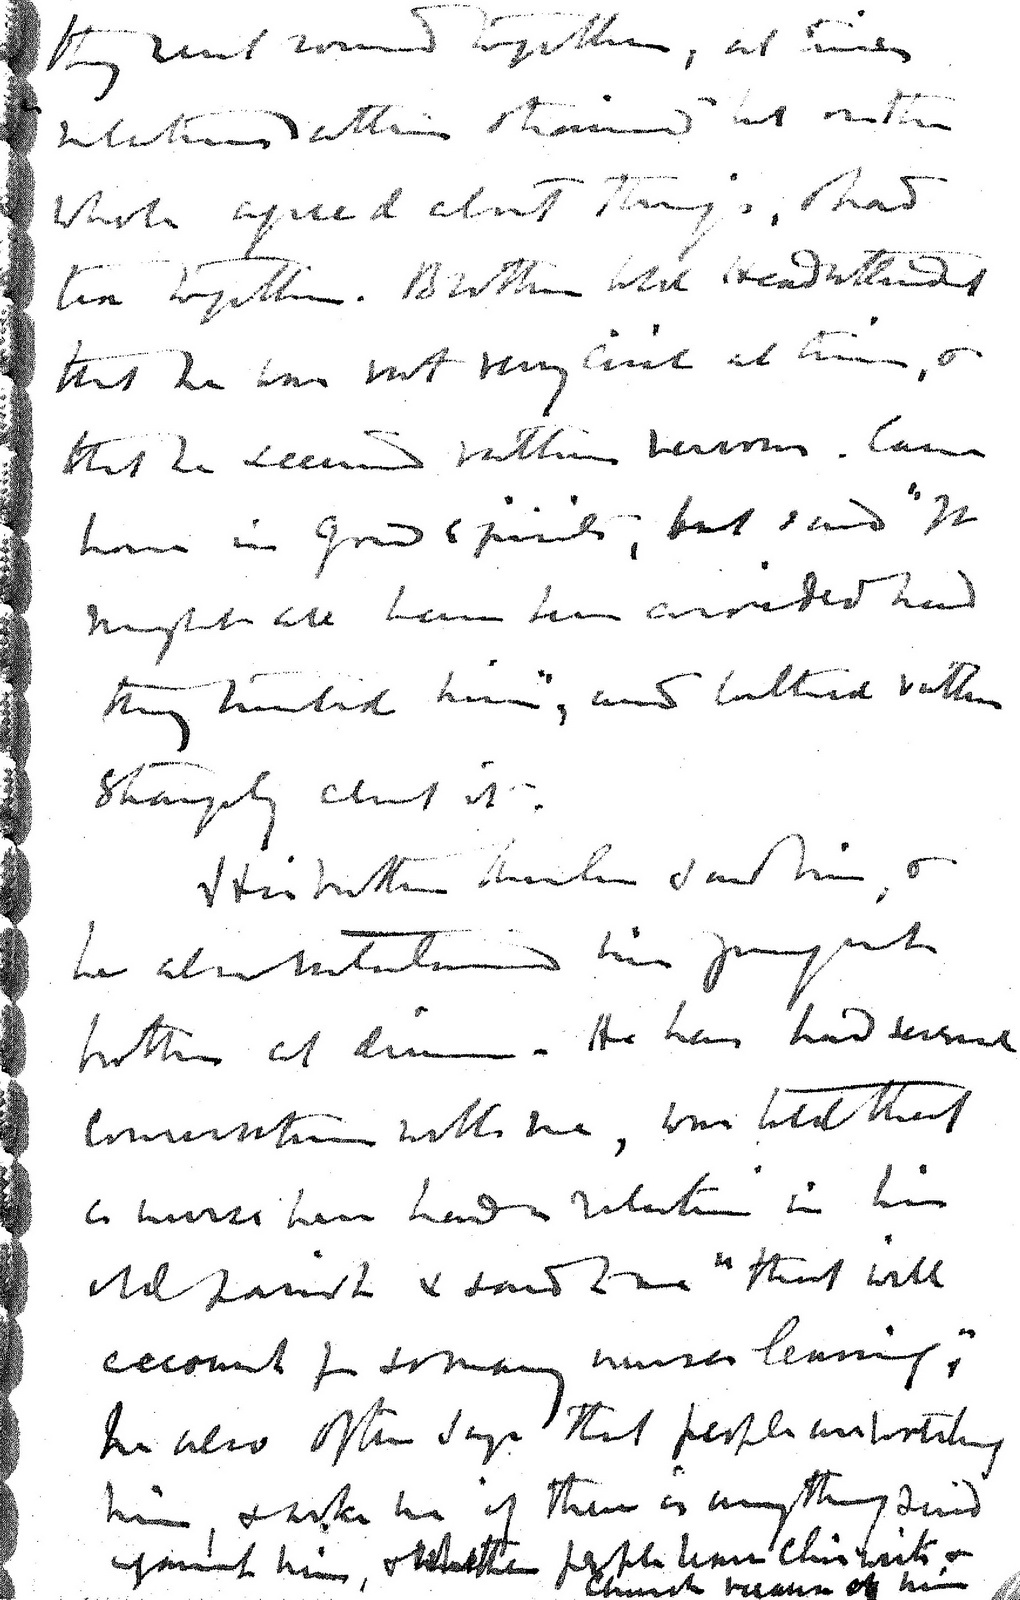 they went round together, at times
relations rather strained but on the
whole agreed about things, & had
tea together. Brother told Head Attendant
that he was not very civil at times, &
that he seemed rather nervous. Came
home in good spirits, but said "It
might all have been avoided had
they trusted him", and talked rather
strangely about it.
His brother has been & said him, &
he also entertained his youngest
brother at dinner. He has had several
conversations with me, was told that
a nurse here had a relation in his
old parish & said to me "that will
account for so many nurses leaving,"
he also often says that people are watching
him, & asks me if there is anything said
against him, & whether people leave
Church because of him